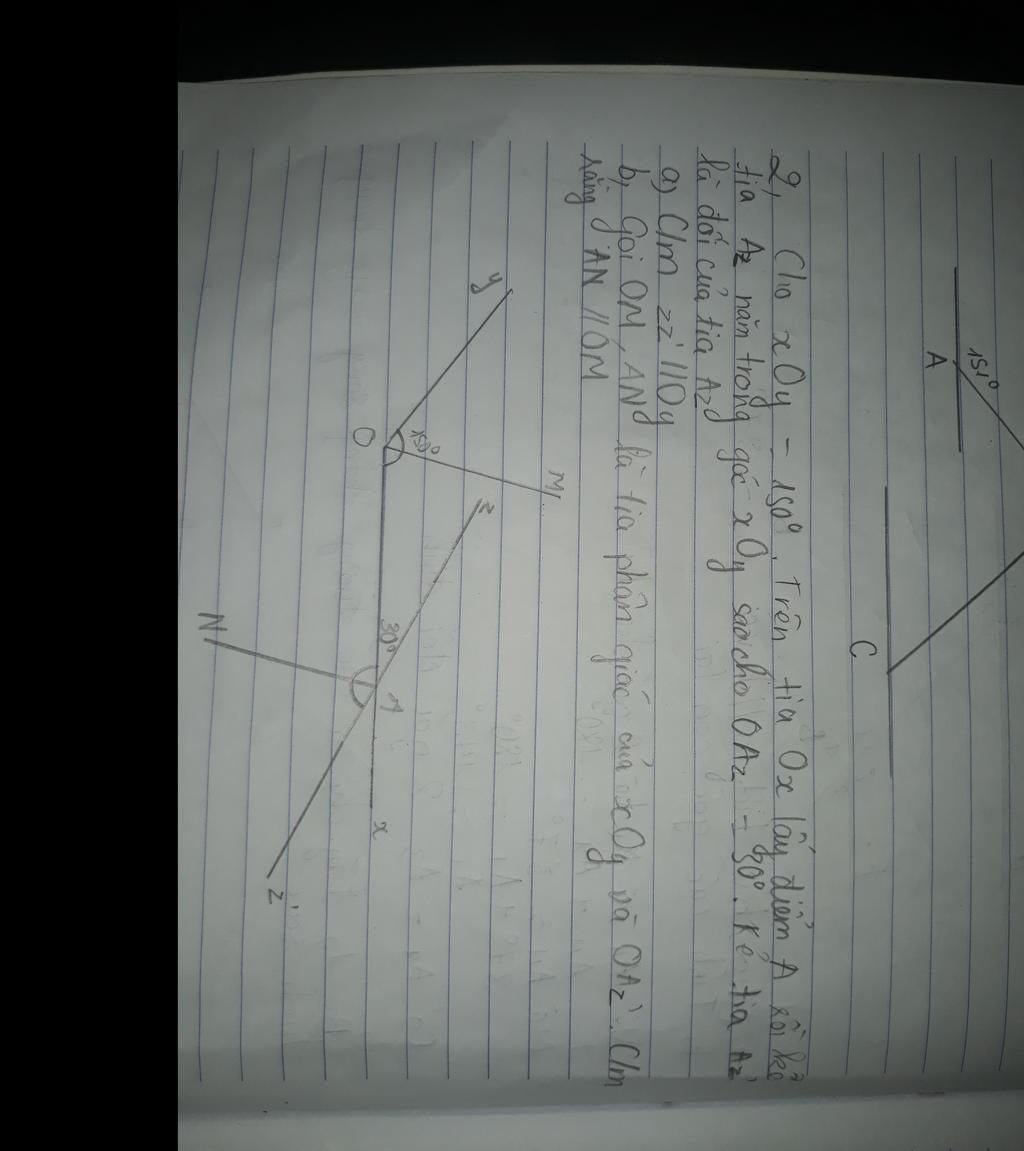 151°
A
C
2, Cho xOy = 150°. Trên tia Ox lấy điểm A rồi kẻ
tia Az nằm trong góc xOy sao cho OAz = 30°. Kẻ tia Az'
là đối của tia Az
a, C/m zz' // Oy
b, Gọi OM, AN là tia phân giác của xOy và OAz'. C/m
rằng AN // OM
y
M
150°
z
O
30°
A
x
N
z'